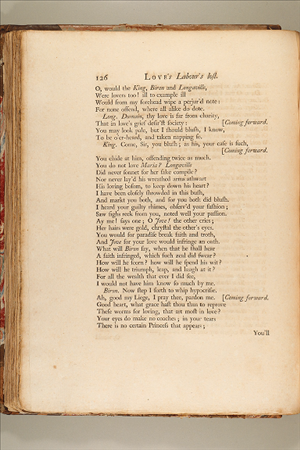 126 LOVE's Labour's lost.
O, would the King, Biron and Longaville,
Were lovers too! ill to example ill
Would from my forehead wipe a perjur'd note:
For none offend, where all alike do dote.
Long. Dumain, thy love is far from charity,
That in love's grief desir'st society: [Coming forward.
You may look pale, but I should blush, I know,
To be o'er-heard, and taken napping so.
King. Come, Sir, you blush; as his, your case is such,
[Coming forward.
You chide at him, offending twice as much.
You do not love Maria? Longaville
Did never sonnet for her sake compile?
Nor never lay'd his wreathed arms athwart
His loving bosom, to keep down his heart?
I have been closely shrowded in this bush,
And markt you both, and for you both did blush.
I heard your guilty rhimes, observ'd your fashion;
Saw sighs reek from you, noted well your passion.
Ay me! says one; O Jove! the other cries;
Her hairs were gold, chrystal the other's eyes.
You would for paradise break faith and troth,
And Jove for your love would infringe an oath.
What will Biron say, when that he shall hear
A faith infringed, which such zeal did swear?
How will he scorn? how will he spend his wit?
How will he triumph, leap, and laugh at it?
For all the wealth that ever I did see,
I would not have him know so much by me.
Biron. Now step I forth to whip hypocrisie.
Ah, good my Liege, I pray thee, pardon me. [Coming forward.
Good heart, what grace hast thou thus to reprove
These worms for loving, that art most in love?
Your eyes do make no coaches; in your tears
There is no certain Princess that appears;
You'll